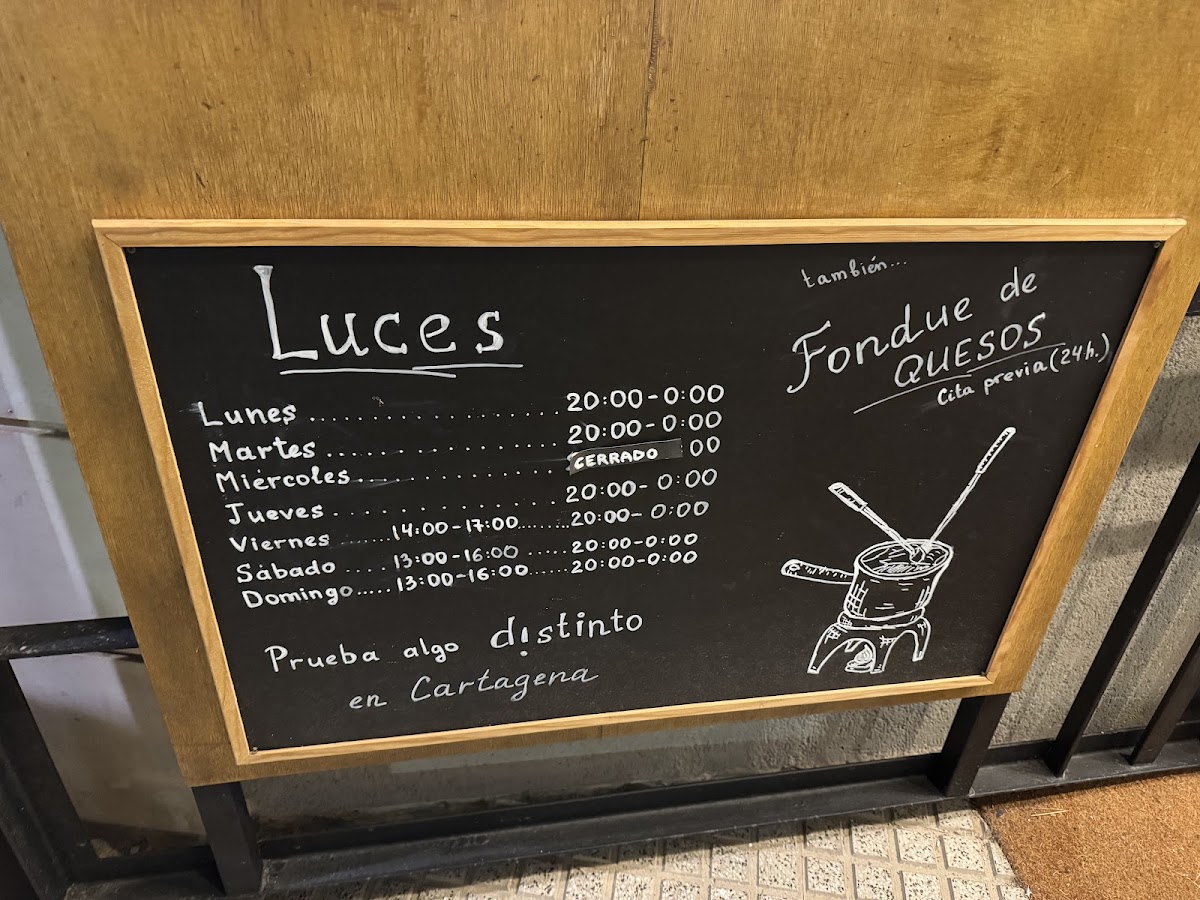 Luces
Lunes .................... 20:00-0:00
Martes .................. 20:00-0:00
Miércoles ................ CERRADO 00
Jueves .................. 20:00-0:00
Viernes ...... 14:00-17:00 ....... 20:00-0:00
Sábado .... 13:00-16:00 ..... 20:00-0:00
Domingo ..... 13:00-16:00 ...... 20:00-0:00
Prueba algo distinto
en Cartagena
también...
Fondue de
QUESOS
Cita previa (24h.)